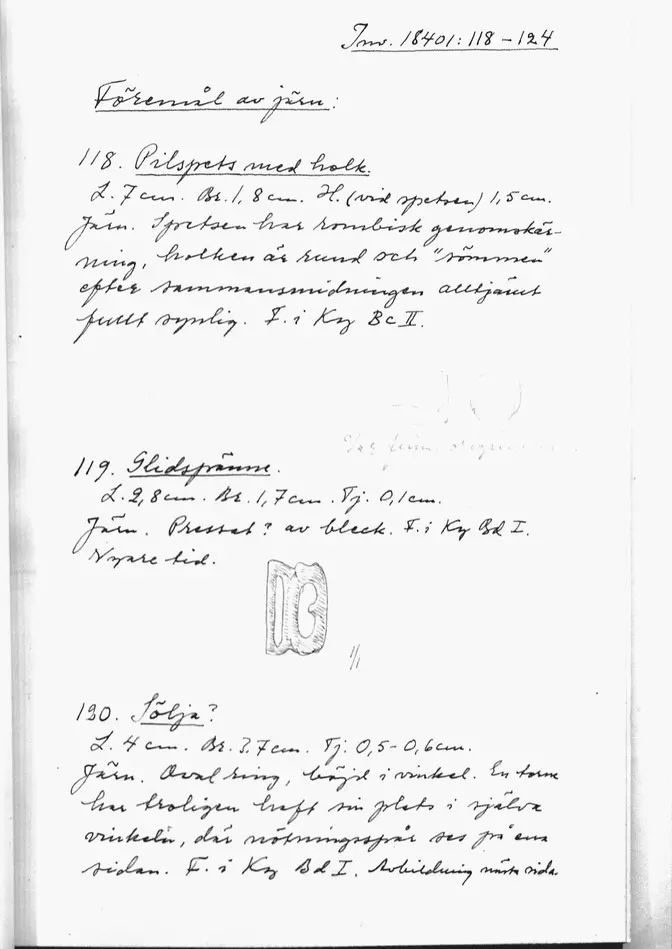 Inv. 18401: 118 – 124
Föremål av järn:
118. Pilspets med holk.
L. 7 cm. Br. 1,8 cm. H. (vid spetsen) 1,5 cm.
Järn. Spetsen har rombisk genomskär-
ning, holken är rund och "sömmen"
efter sammansmidningen alltjämt
fullt synlig. F. i Ky Bc II.
119. Glidspänne.
L. 2,8 cm. Br. 1,7 cm. Tj. 0,1 cm.
Järn. Pressat? av bleck. F. i Ky Bd I.
Nyare tid.
1/1
120. Sölja?
L. 4 cm. Br. 3,7 cm. Tj. 0,5-0,6 cm.
Järn. Oval ring, böjd i vinkel. En torne
har troligen haft sin plats i själva
vinkeln, där nötningsspår ses på ena
sidan. F. i Ky Bd I. Avbildning nästa sida.